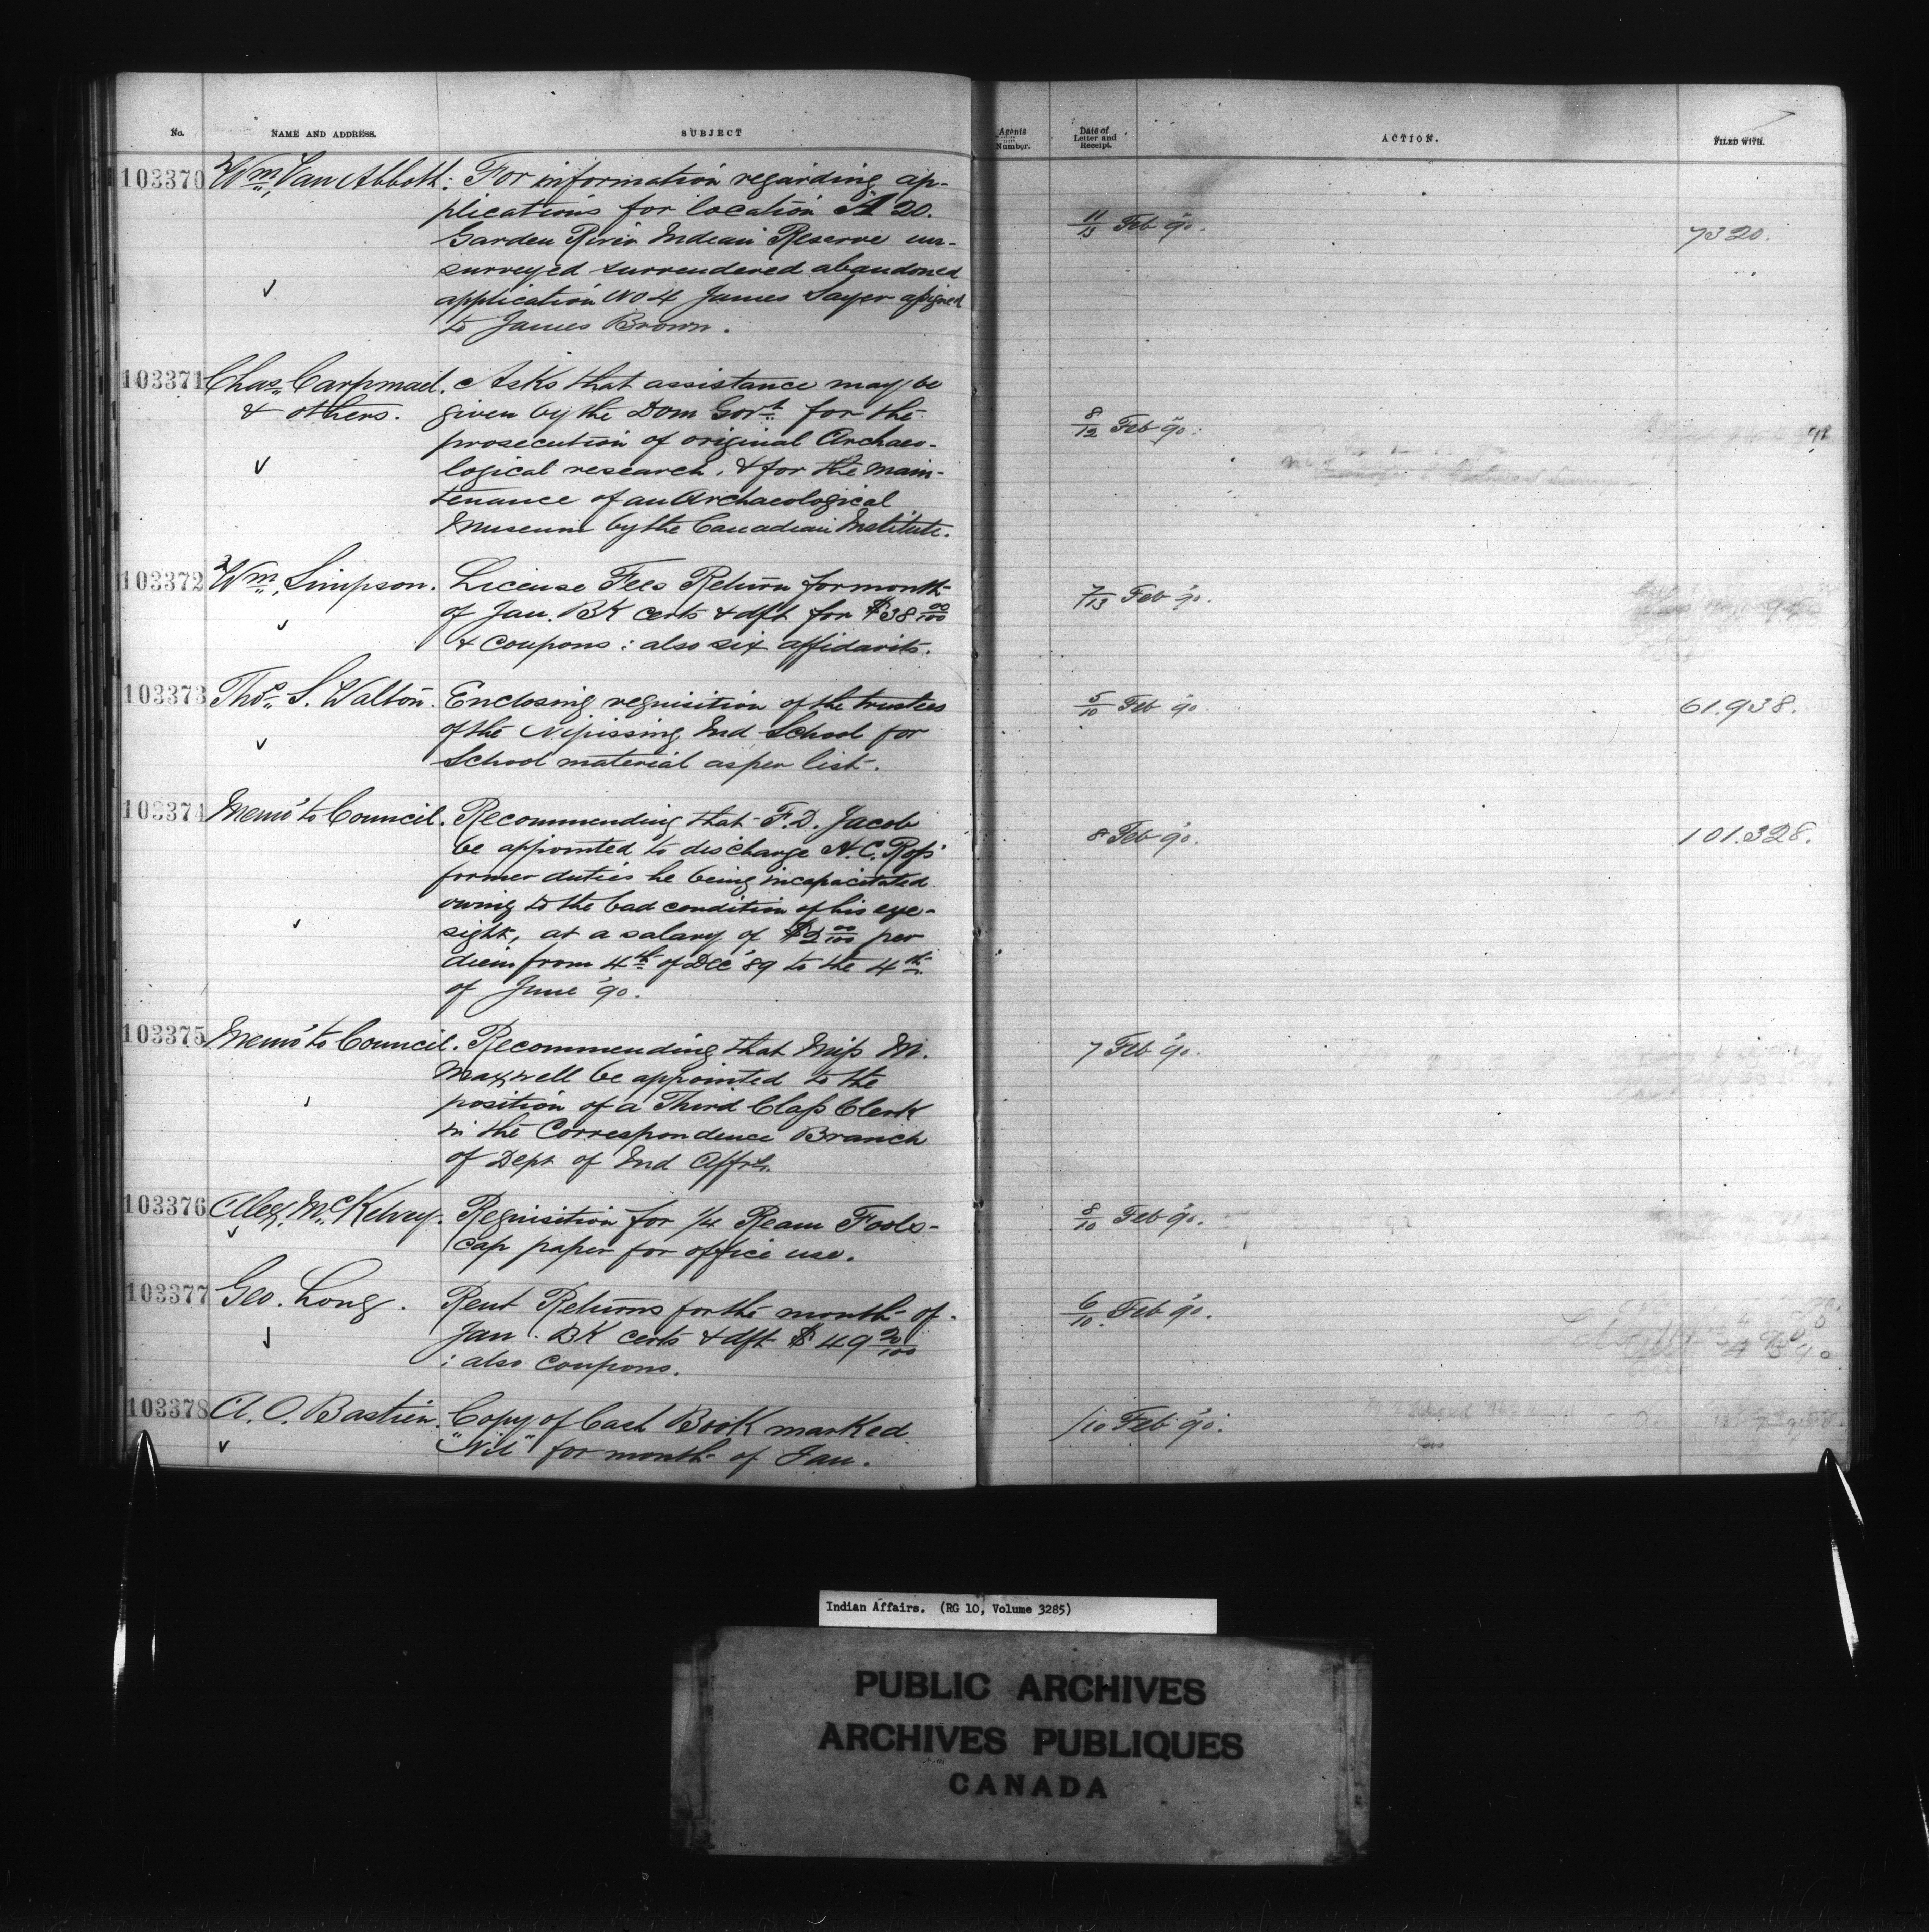 No. NAME AND ADDRESS. SUBJECT Agents Number. Date of Letter and Receipt. ACTION. FILED WITH.
103370 Wm. Van Abbott: For information regarding ap-
plications for location A 20.
Garden River Indian Reserve un-
surveyed surrendered abandoned
application No 4 James Sayer assigned
to James Brown.
11/13 Feb '90. 7320.
103371 Chas. Carpmael. Asks that assistance may be
& others. given by the Dom Govt. for the
prosecution of original Archaeo-
logical research, & for the main-
tenance of an Archaeological
Museum by the Canadian Institute.
8/12 Feb '90.
103372 Wm. Simpson. License Fees Return for month
of Jan. BK certs & dft for $38 00/100
& coupons: also six affidavits.
7/13 Feb '90.
103373 Thos. S. Walton. Enclosing requisition of the trustees
of the Nipissing Ind School for
School material as per list.
5/10 Feb '90. 61.938.
103374 Memo' to Council. Recommending that F.D. Jacob
be appointed to discharge H.C. Ross'
former duties he being incapacitated
owing to the bad condition of his eye-
sight, at a salary of $2 00/100 per
diem from 4th of Dec '89 to the 4th
of June '90.
8 Feb '90. 101.328.
103375 Memo' to Council. Recommending that Miss M.
Maxwell be appointed to the
position of a Third Class Clerk
in the Correspondence Branch
of Dept of Ind Affrs.
7 Feb '90.
103376 Alex. McKelvey. Requisition for 1/4 Ream Fools-
cap paper for office use.
8/10 Feb '90.
103377 Geo. Long. Rent Returns for the month of
Jan. BK certs & dft $49 20/100
: also coupons.
6/10 Feb '90.
103378 A. O. Bastien. Copy of Cash Book marked
"Nil" for month of Jan.
/10 Feb '90.
Indian Affairs. (RG 10, Volume 3285)
PUBLIC ARCHIVES
ARCHIVES PUBLIQUES
CANADA